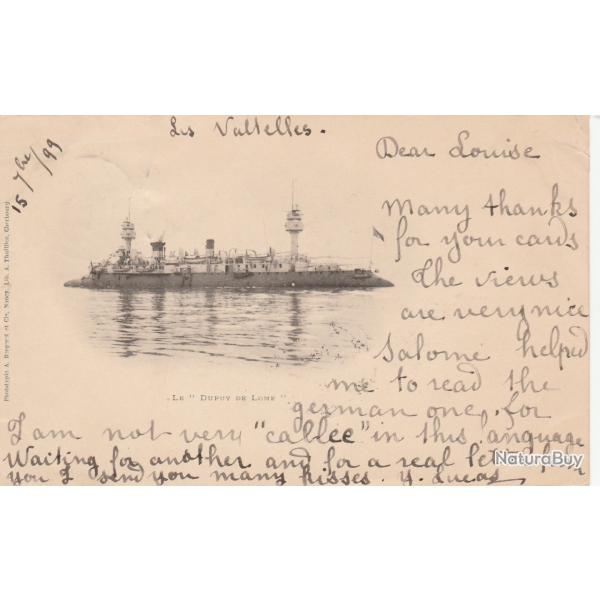 Les Valtelles.
15 7bre/99
Dear Louise
Many thanks
for your cards
The views
are very nice
Salome helped
me to read the
german one, for
I am not very "callée" in this language
Waiting for another and for a real letter from
you I send you many kisses. Y. Lucas
Le "Dupuy de Lome"
Phototypie A. Bergeret et Cie, Nancy. Lib. A. Cherbourg
NaturaBuy